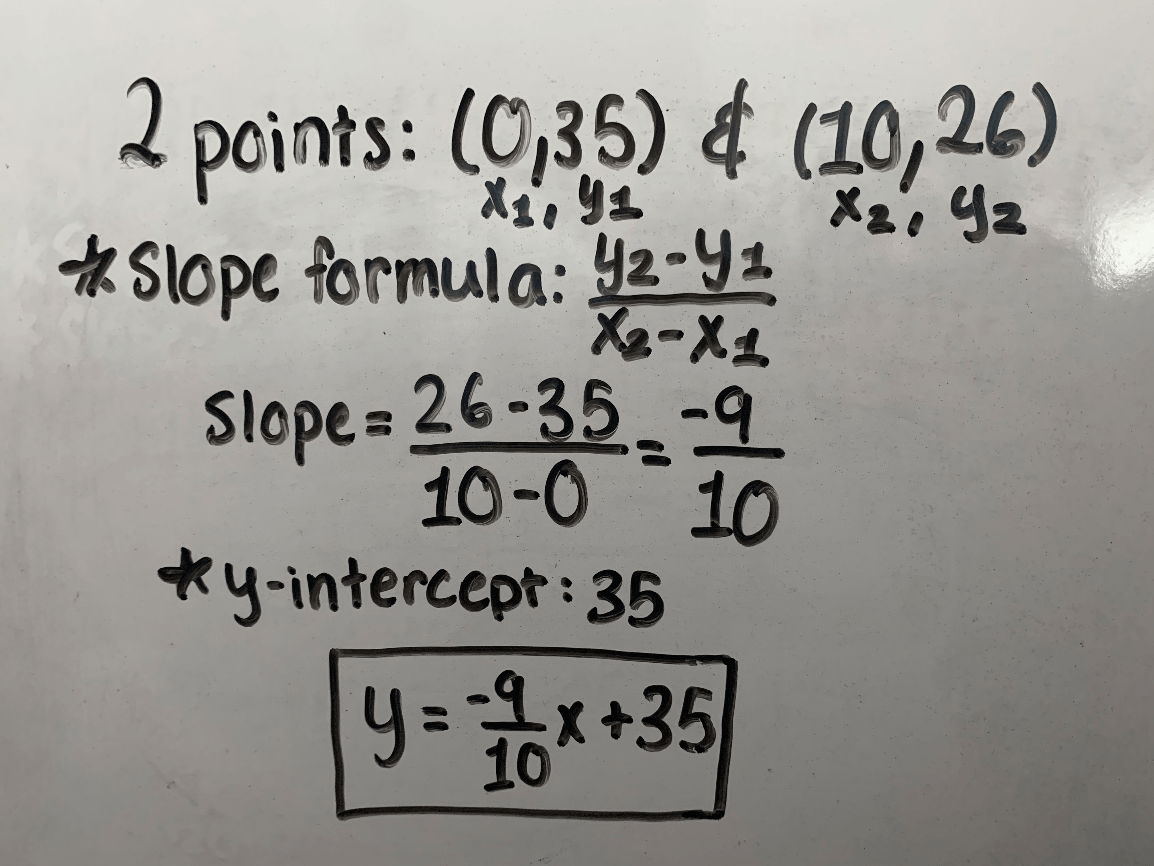 2 points: (0,35) & (10,26)
x₁, y₁ x₂, y₂
*Slope formula: y₂-y₁/x₂-x₁
Slope = 26-35/10-0 = -9/10
*y-intercept: 35
y = -9/10 x + 35